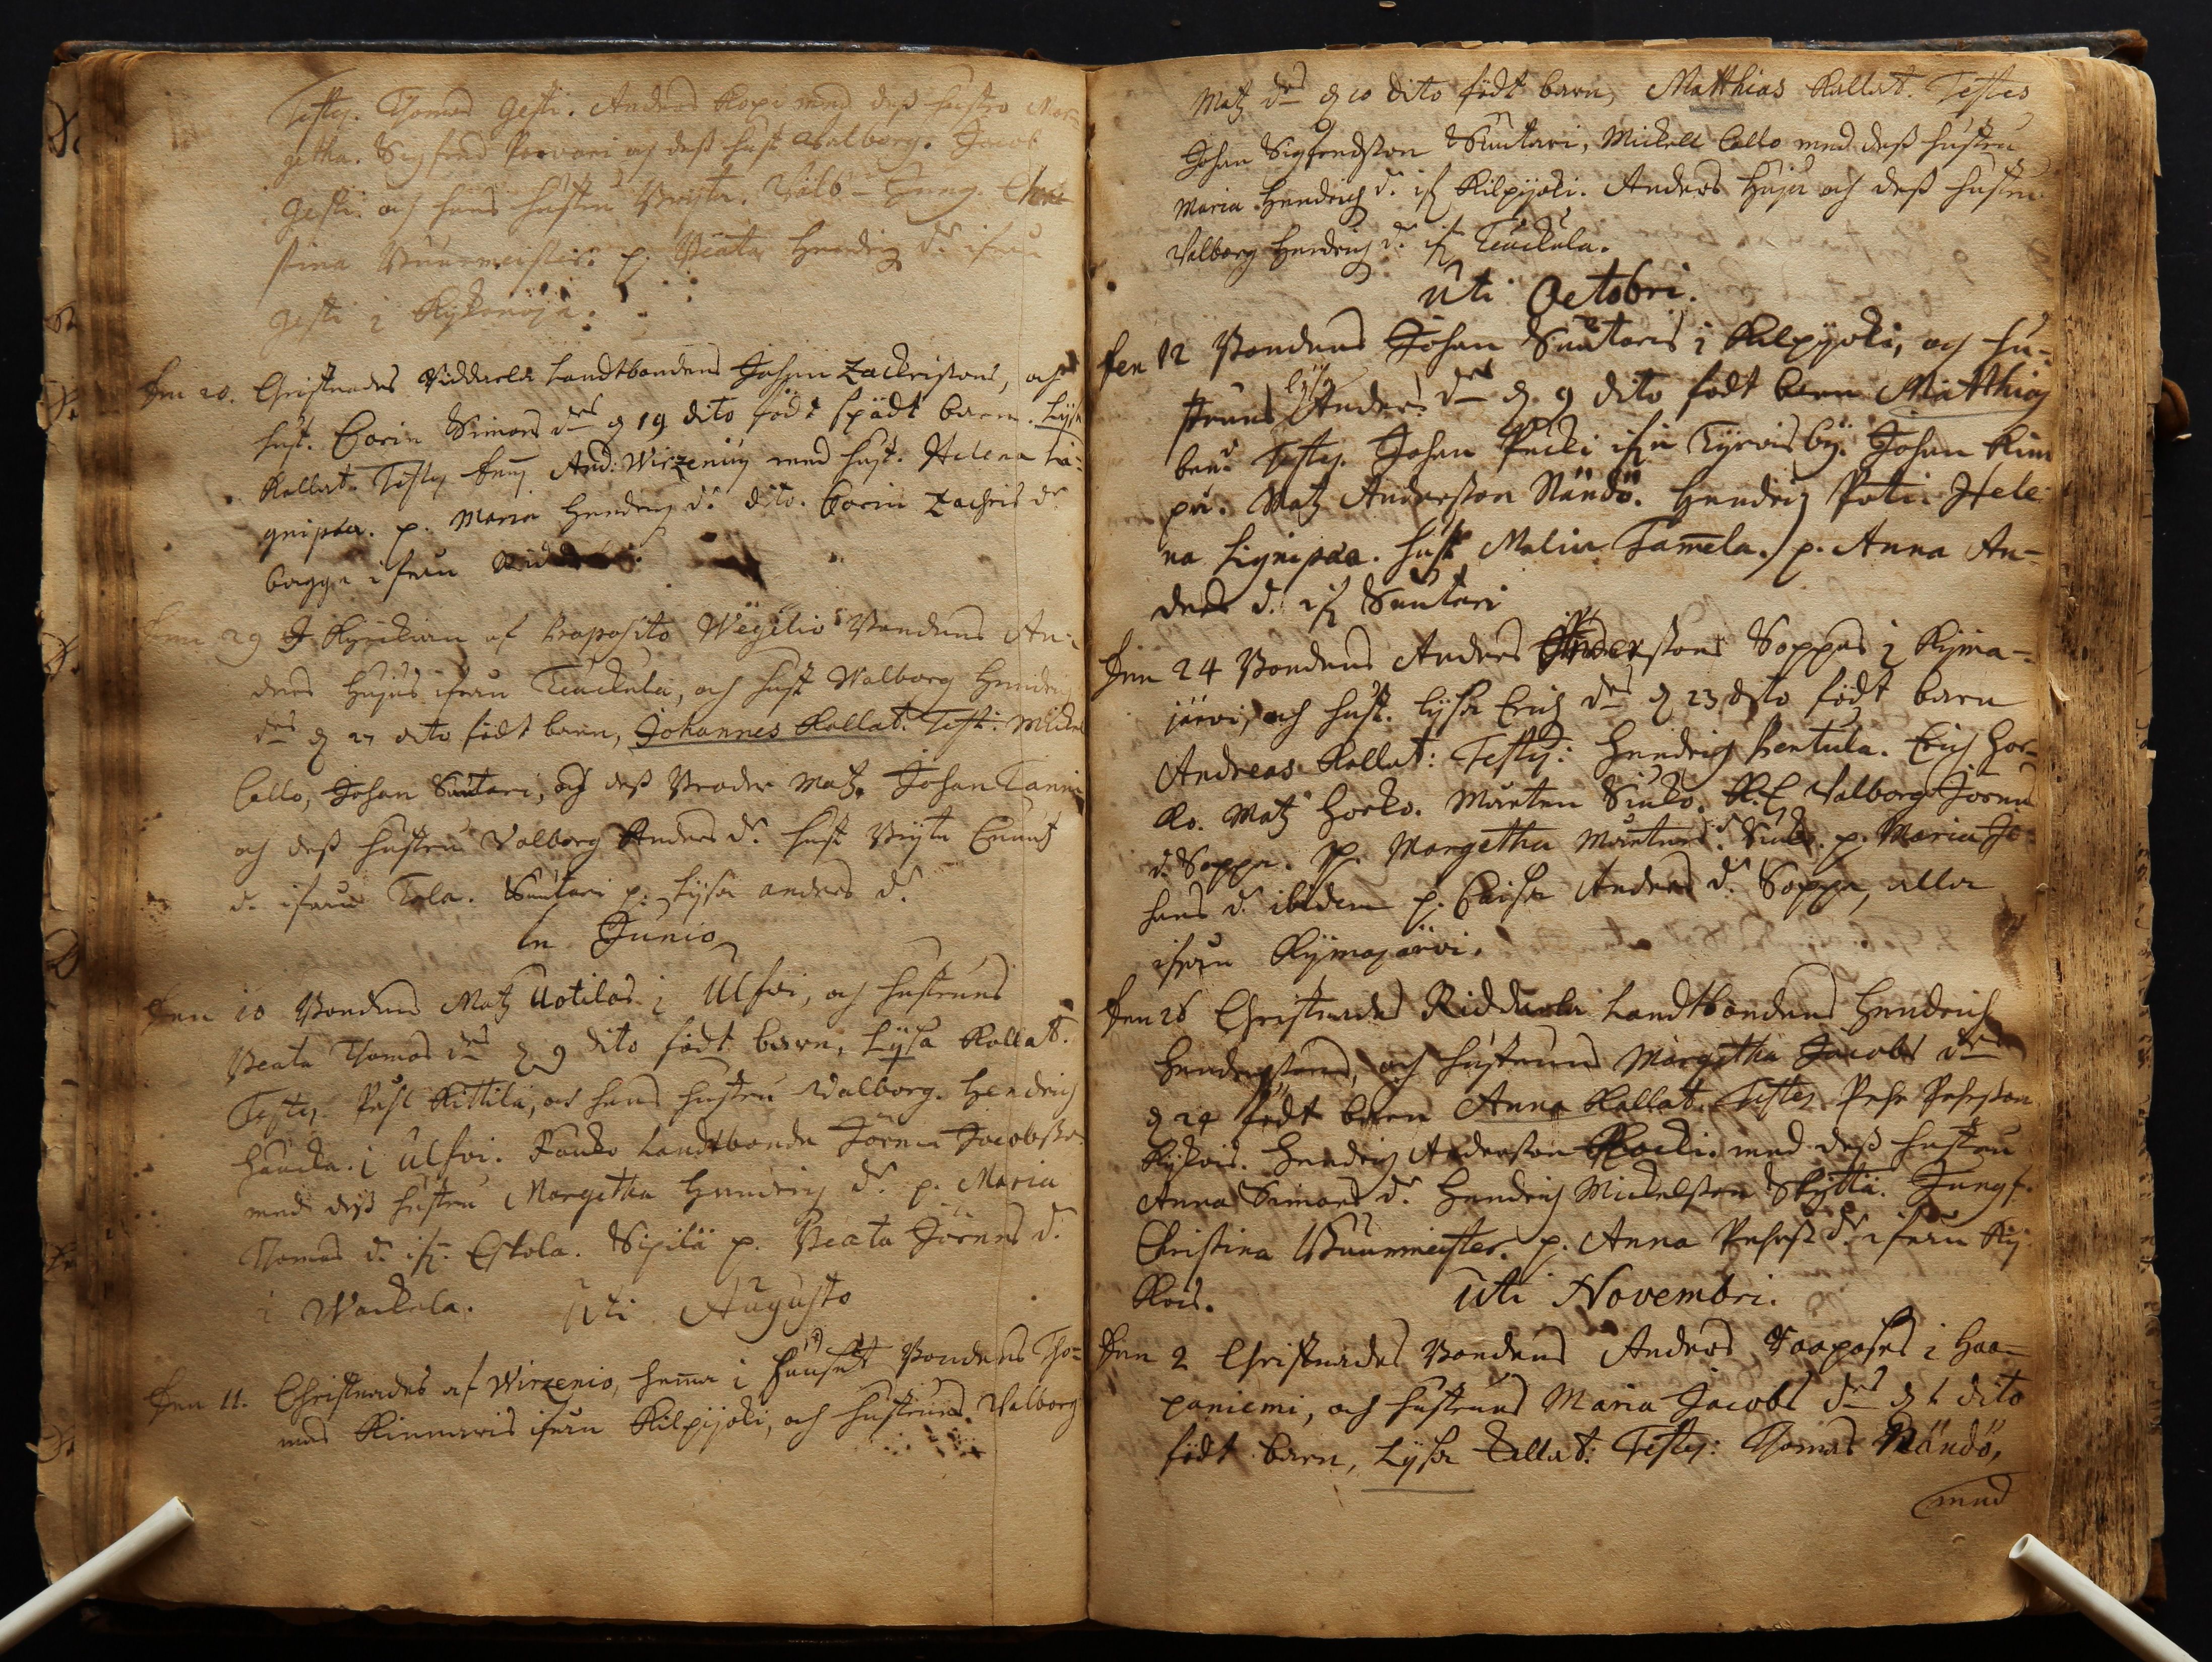 Testes. Thomas Gesti. Anders Kopi med dess hustro Mar-
getha. Sigfred Porvari och dess hust. Walborg. Jacob
Gesti och hans hustru Bryta. Jung. Chri-
stina Buurmeister. p. Beata Hendrichs d:r ifrån
Gesti i Kykänoja.
Den 20. Christnades Riddarla Landtbondens Johan Zachrissons, och
hust. Carin Simons d:rs d. 19 dito födt spädt barn. Lysa
Kallat. Testes And: Wirzenius med hust. Helena Lig-
nipaea. p. Maria Hendrichs d:r dito. Carin Zachris d:r
bagge ifrån
Den 29 I Kyrckian af Praeposito Wegelio Bondens An-
ders Hujus ifrån Teuckula, och hust Walborg Hendrichs
d:rs d. 27 dito födt barn, Johannes Kallat. Test: Mickel
Collo, Johan Suutari, och dess Broder Matz. Johan Tanni
och dess hustru Valborg Anders d:r hust Bryta
d. ifrån Tola. Suutari p. Lysa anders d:r
in Junio
Den 10 Bondens Matz Uotilas i Ulfvi, och hustruns
Beata Thomas d:rs d. 9 dito födt barn, Lysa Kallat.
Testes. Kittilä, och hans hustru Valborg. Hendrich
Haucka i Ulfvi. Landtbonde Jören Jacobsson
med dess hustru Margetha Hendrichs d:r p. Maria
Thomas d. if: Eskola. Sipilä p. Beata Jörens d:
i Wackola.
Uti Augusto
Den 11. Christnades af Wirzenio, hema i huuset Bondens Tho-
mas Kinnaris ifrån Kilpijoki, och hustruns Valborg
Matz d:rs d. 10 dito födt barn, Matthias Kallat. Testes
Johan Sigfredsson Suutari, Mickell Collo med dess hustru
Maria Hendrichs d:r if: Kilpijoki. Anders Huju och dess hustru
Valborg Hendrichs d:r if: Teuckula.
Uti Octobri.
Den 12 Bondens Johan Suutaris i Kilpijoki, och hu-
struns Lysa Anders d:rs d. 9 dito födt barn Matthias
ben:d Testes. Johan Pecki ifrån Tyrvis by. Johan Kim
pa. Matz Andersson Nändö. Hendrich Poti. Hele-
na Lignipaea. hust Malin Tamela. p. Anna An-
ders d. if: Suutari
Den 24 Bondens Anders Anderssons Soppas i Kyma-
järvi, och hust. Lysa Erichs d:rs d. 23 dito födt barn
Andreas Kallat: Testes: Hendrich Pentula. Erich Hor-
ko. Matz Horko. Mårten Siuko. Valborg Jörens
d:r Soppa. p. Margetha Mårtens d:r Siuko. p. Maria Jo-
hans d. ibidem p. Caisa Anders d:r Soppa, alla
ifrån Kymajärvi.
Den 26 Christnades Riddarla Landtbondens Hendrich
Hendrichssons, och hustruns Margetha Jacobs d:rs
d. 24 födt barn Anna Kallat. Testes Pehr Pehrsson
Kykois. Hendrich Andersson med dess hustru
Anna Simons d:r Hendrich Mickelsson Skyttä. Jungf.
Christina Buurmeister. p. Anna Pehrs d:r ifrån Ky-
kois.
Uti Novembri.
Den 2 Christnades Bondens Anders i Haa-
paniemi, och hustruns Maria Jacobs d:rs d. 1 dito
födt barn, Lysa Kallat: Testes: Thomas Nändö,
med